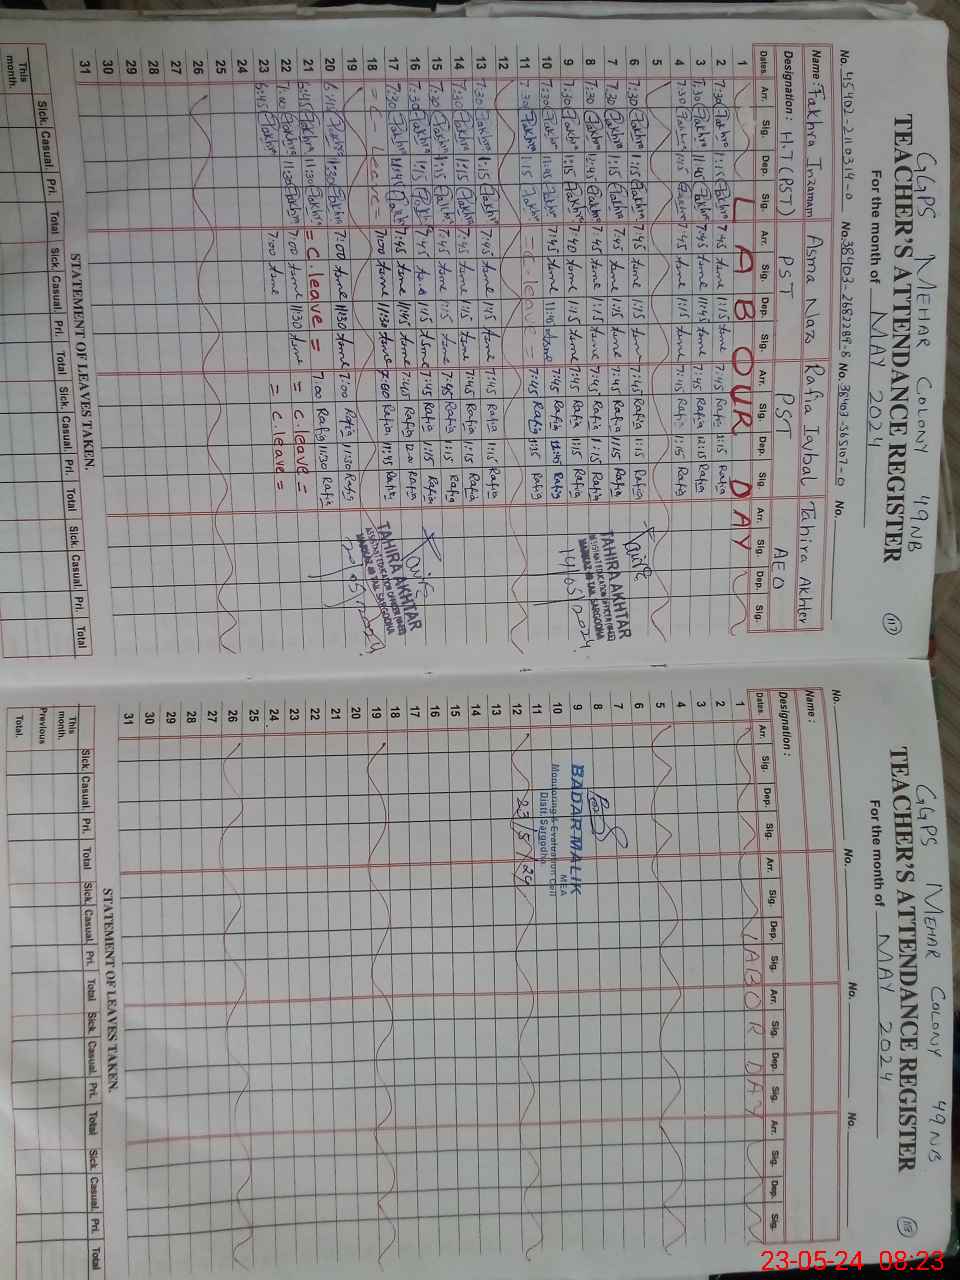 GGPS MEHAR COLONY 49NB
TEACHER'S ATTENDANCE REGISTER
117
For the month of MAY 2024
No. 45402-2110314-0 No. 38403-2682289-8 No. 38403-565107-0 No.
Name: Fakhra Inzamam Asma Naz Rafia Iqbal Tahira Akhter
Designation: H.T (PST) PST PST AEO
Dates. Arr. Sig. Dep. Sig. Arr. Sig. Dep. Sig. Arr. Sig. Dep. Sig. Arr. Sig. Dep. Sig.
1 LABOUR DAY
2 7:30 Fakhra 1:15 Fakhra 7:45 1:15 7:45 Rafia 1:15 Rafia
3 7:30 Fakhra 11:45 Fakhra 7:45 11:45 7:45 Rafia 12:15 Rafia
4 7:30 Fakhra 1:15 Fakhra 7:45 1:15 7:45 Rafia 1:15 Rafia
5
6 7:30 Fakhra 1:15 Fakhra 7:45 1:15 7:45 Rafia 1:15 Rafia
7 7:30 Fakhra 1:15 Fakhra 7:45 1:15 7:45 Rafia 1:15 Rafia
8 7:30 Fakhra 12:45 Fakhra 7:45 1:15 7:45 Rafia 1:15 Rafia
9 7:30 Fakhra 1:15 Fakhra 7:40 1:15 7:45 Rafia 1:15 Rafia
10 7:30 Fakhra 11:45 Fakhra 7:45 11:45 7:45 Rafia 12:45 Rafia
11 7:30 Fakhra 1:15 Fakhra = C-leave = 7:45 Rafia 1:15 Rafia
12
13 7:30 Fakhra 1:15 Fakhra 7:45 1:15 7:45 Rafia 1:15 Rafia
14 7:30 Fakhra 1:15 Fakhra 7:45 1:15 7:45 Rafia 1:15 Rafia
15 7:30 Fakhra 1:15 Fakhra 7:45 1:15 7:45 Rafia 1:15 Rafia
16 7:30 Fakhra 1:15 Fakhra 7:45 1:15 7:45 Rafia 1:15 Rafia
17 7:30 Fakhra 11:45 Fakhra 7:45 11:45 7:45 Rafia 12:00 Rafia
18 = C- Leave = 7:00 11:30 7:00 Rafia 11:45 Rafia
19
20 6:45 Fakhra 11:30 Fakhra 7:00 11:30 7:00 Rafia 11:30 Rafia
21 6:45 Fakhra 11:30 Fakhra = C.leave = 7:00 Rafia 11:30 Rafia
22 7:00 Fakhra 11:30 Fakhra 7:00 11:30 = C.leave =
23 6:45 Fakhra 7:00 = C.leave =
24
25
26
27
28
29
30
31
TAHIRA AKHTAR
ASSISTANT EDUCATION OFFICER
MARKAZ SARGODHA
14/05/2024
TAHIRA AKHTAR
ASSISTANT EDUCATION OFFICER
MARKAZ SARGODHA
21/05/2024
STATEMENT OF LEAVES TAKEN.
Sick. Casual. Pri. Total Sick. Casual. Pri. Total Sick. Casual. Pri. Total Sick. Casual. Pri. Total
This month.
GGPS MEHAR COLONY 49NB
TEACHER'S ATTENDANCE REGISTER
118
For the month of MAY 2024
No. No. No. No.
Name:
Designation:
Dates. Arr. Sig. Dep. Sig. Arr. Sig. Dep. Sig. Arr. Sig. Dep. Sig. Arr. Sig. Dep. Sig.
1 LABOR DAY
2
3
4
5
6
7
8
9
10
11
12
13
14
15
16
17
18
19
20
21
22
23
24
25
26
27
28
29
30
31
BADAR MALIK
MEA
Monitoring & Evaluation Cell
Distt. Sargodha.
23/5/24
STATEMENT OF LEAVES TAKEN.
Sick. Casual. Pri. Total Sick. Casual. Pri. Total Sick. Casual. Pri. Total Sick. Casual. Pri. Total
This month.
Previous
Total.
23-05-24 08:23